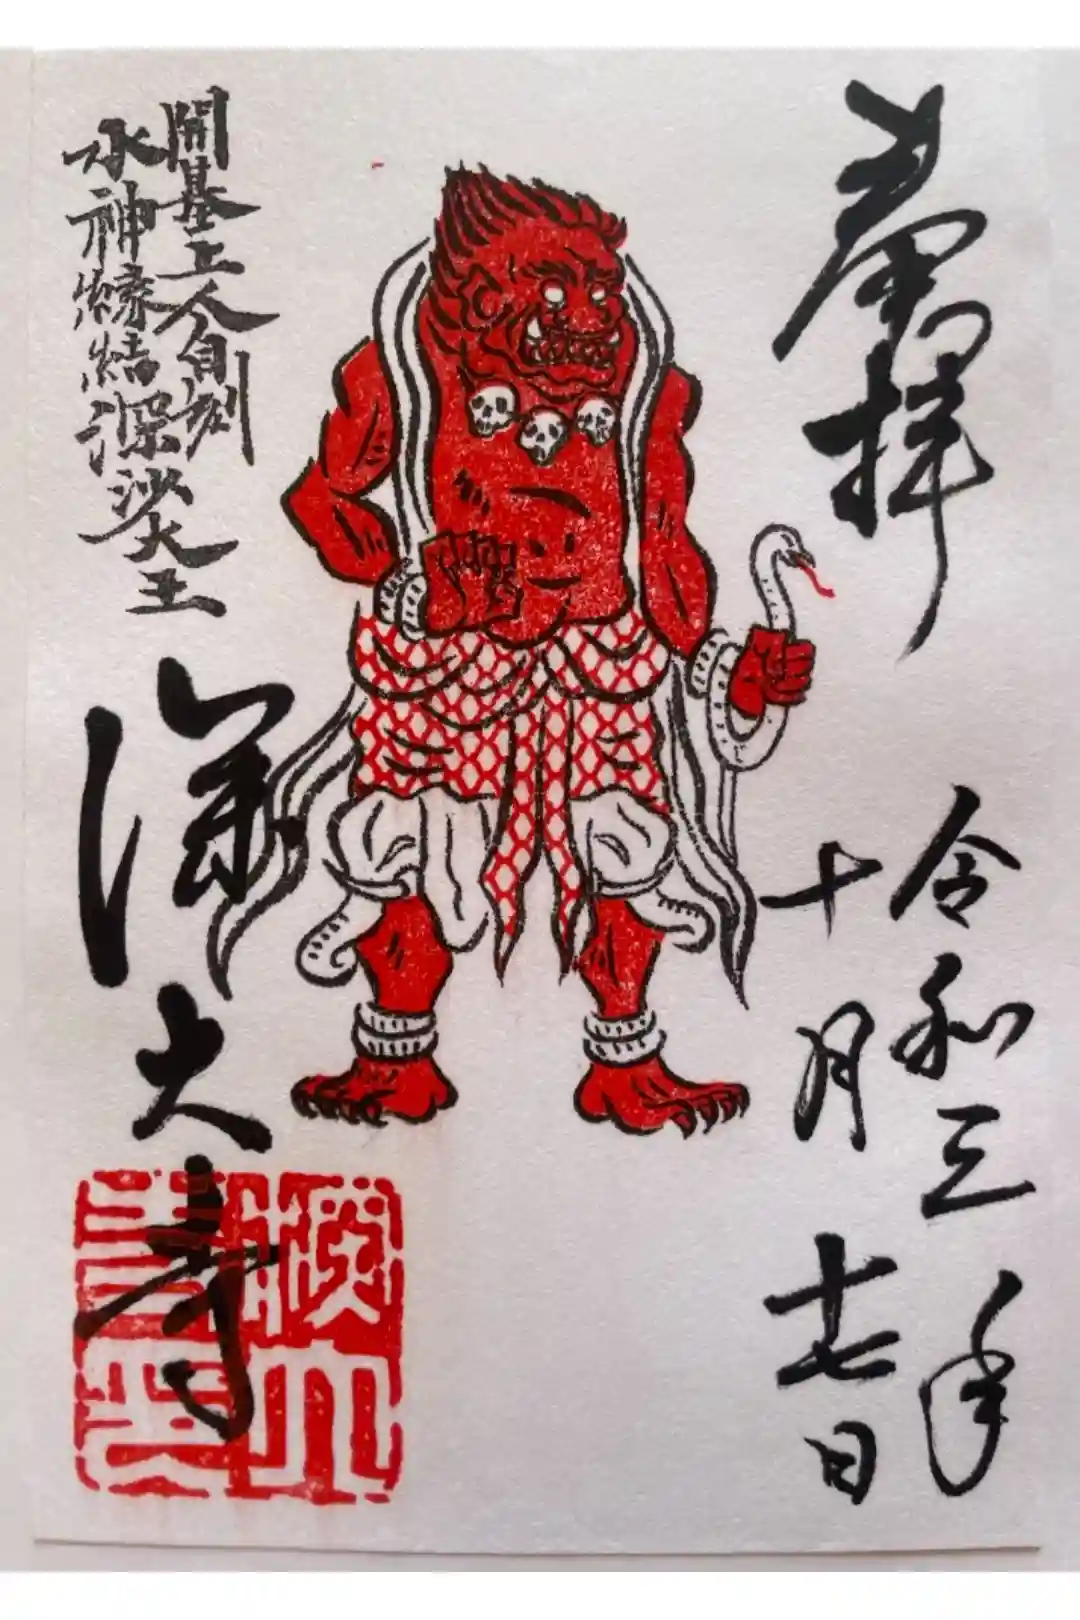 奉拝
令和三年
十月十七日
開基上人自刻
水神縁結深沙大王
深大寺
深大寺印